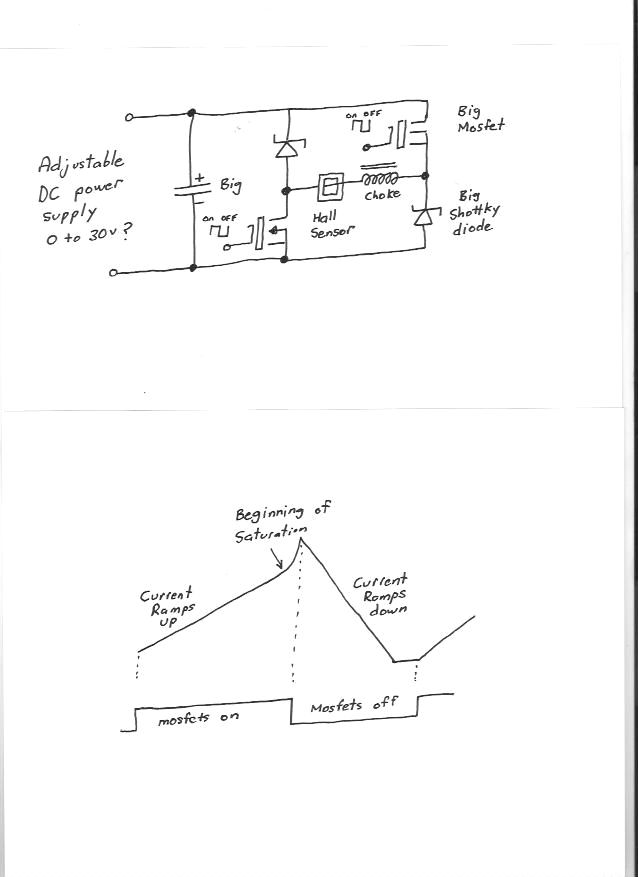 Adjustable
DC power
supply
0 to 30v?
+
-
Big
on off
on off
Hall
Sensor
choke
Big
Mosfet
Big
Shottky
diode
Beginning of
Saturation
Current
Ramps
up
Current
Ramps
down
mosfets on
Mosfets off